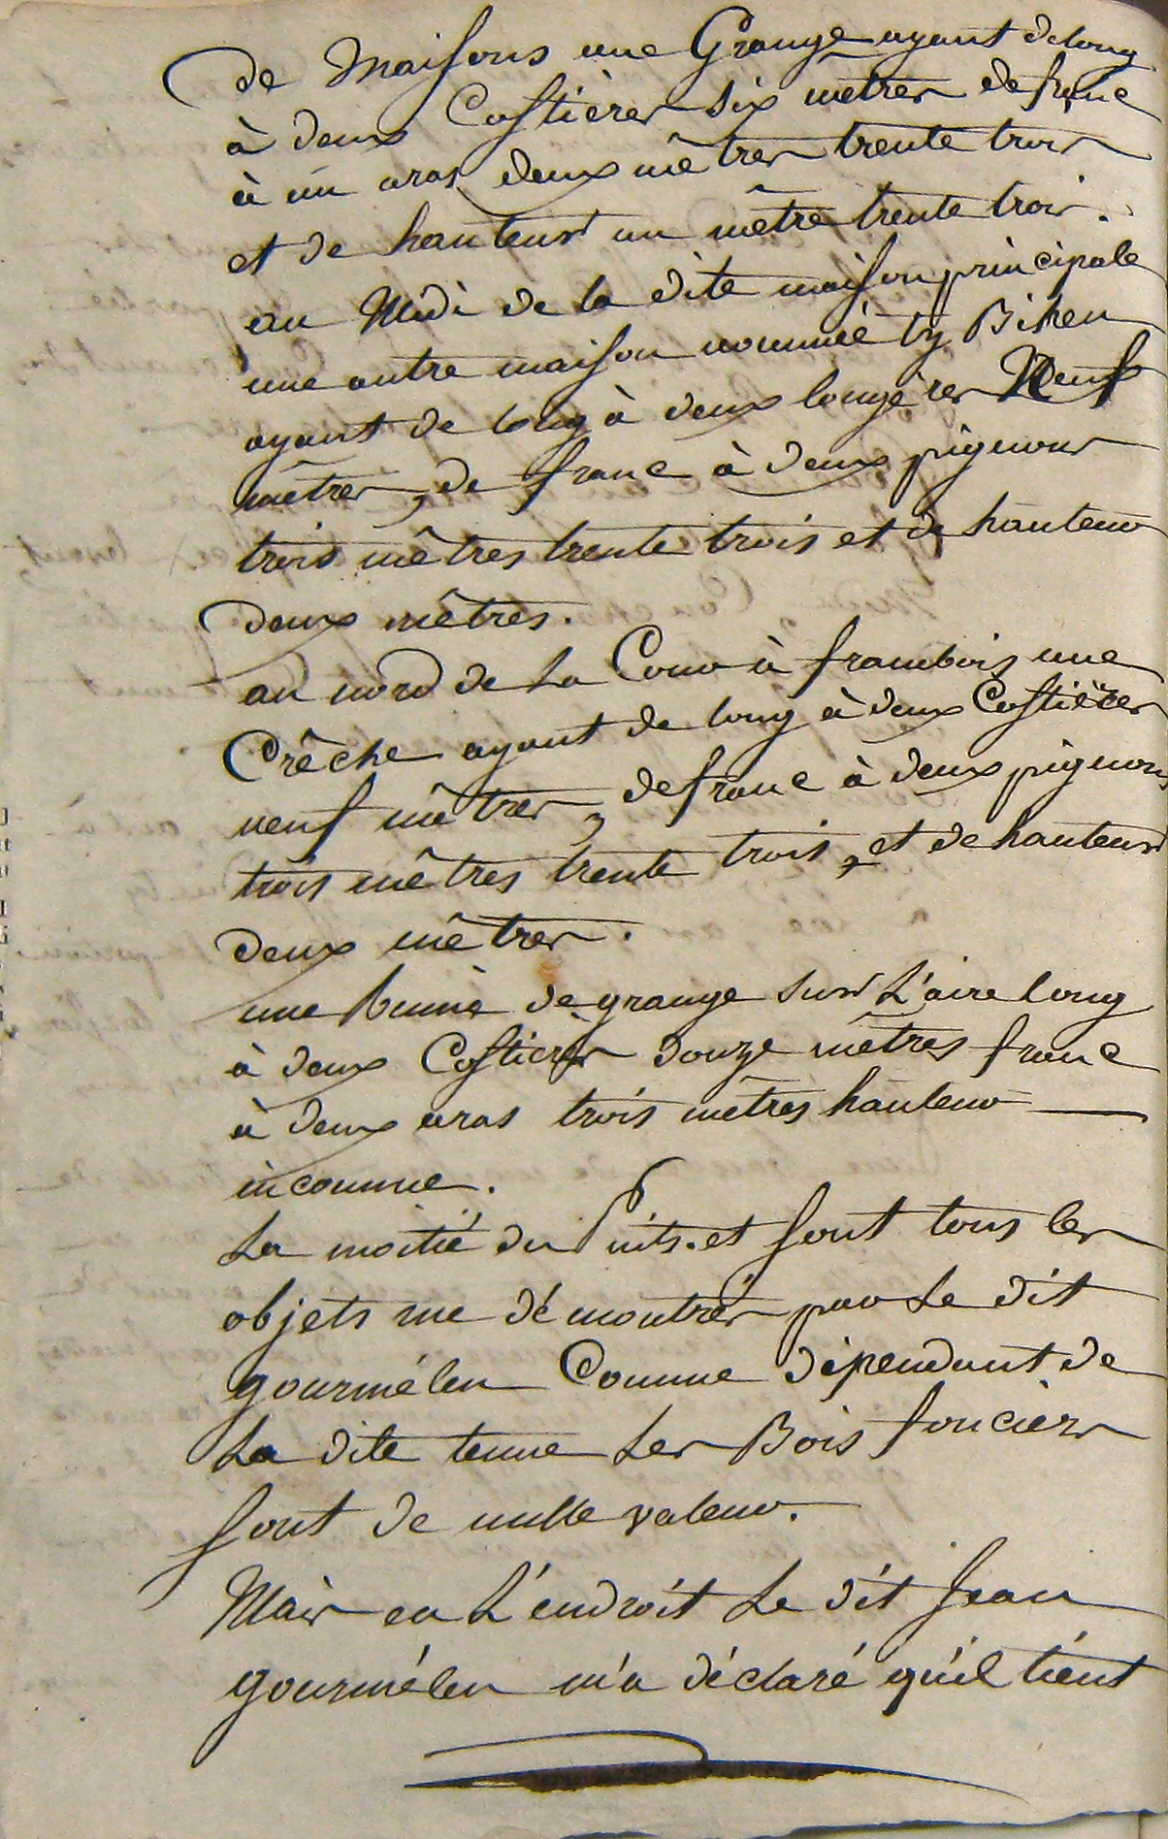 de Maisons une Grange ayant de long
à deux Costières six mètres de franc
à un aras deux mêtres trente trois
et de hauteur un mêtre trente trois.
au Midi de la dite maison principale
une autre maison nommée ty Bihen
ayant de long à deux longères Neuf
mêtres, de franc à deux pignons
trois mêtres trente trois et de hauteur
deux mêtres.
au nord de La Cour à frambois une
Crêche ayant de long à deux Costières
neuf mêtres, de franc à deux pignons
trois mêtres trente trois, et de hauteur
deux mêtres.
une ruine de grange sur L'aire long
à deux Costières douze mêtres franc
à deux aras trois mêtres hauteur
inconnue.
La moitié du Puits. et sont tous les
objets me démontrés par Le dit
gourmélen Comme dépendant de
La dite tenue Les Bois fonciers
sont de nulle valeur.
Mais en L'endroit Le dit Jean
gourmélen m'a déclaré qu'il tient